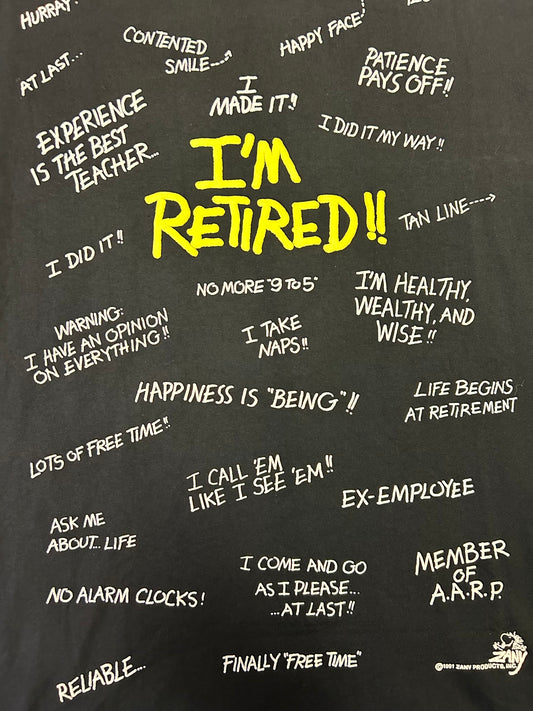 HURRAY!
CONTENTED
SMILE---→
HAPPY FACE
AT LAST...
I
MADE IT!!
PATIENCE
PAYS OFF!!
EXPERIENCE
IS THE BEST
TEACHER...
I DID IT MY WAY!!
I'M
RETIRED!!
TAN LINE---→
I DID IT!!
NO MORE "9 TO 5"
I'M HEALTHY,
WEALTHY, AND
WISE!!
WARNING:
I HAVE AN OPINION
ON EVERYTHING!!
I TAKE
NAPS!!
HAPPINESS IS "BEING"!!
LIFE BEGINS
AT RETIREMENT
LOTS OF FREE TIME!!
I CALL 'EM
LIKE I SEE 'EM!!
EX-EMPLOYEE
ASK ME
ABOUT... LIFE
I COME AND GO
AS I PLEASE...
...AT LAST!!
MEMBER
OF
A.A.R.P.
NO ALARM CLOCKS!
RELIABLE...
FINALLY "FREE TIME"
ZANY
©1991 ZANY PRODUCTS, INC.